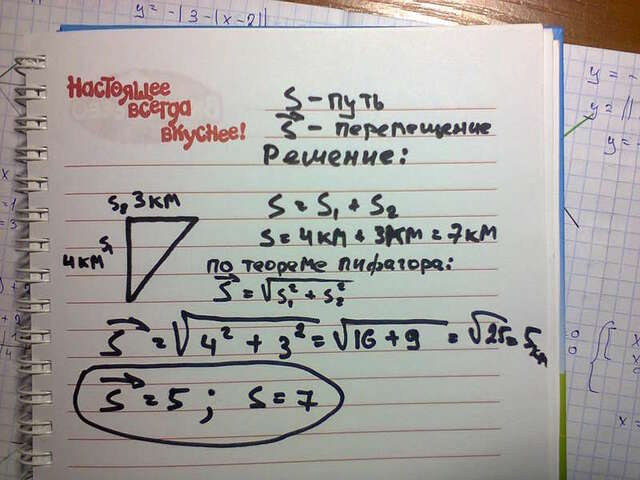 y = -|3-|x-2||
Настоящее
всегда
вкуснее!
S - путь
S⃗ - перемещение
Решение:
S₂ 3 км
S₁
4 км
S = S₁ + S₂
S = 4 км + 3 км = 7 км
по теореме пифагора:
S⃗ = √S₁² + S₂²
S⃗ = √4² + 3² = √16 + 9 = √25 = 5 км
S⃗ = 5 ; S = 7
y =
y = ||
y =
x =